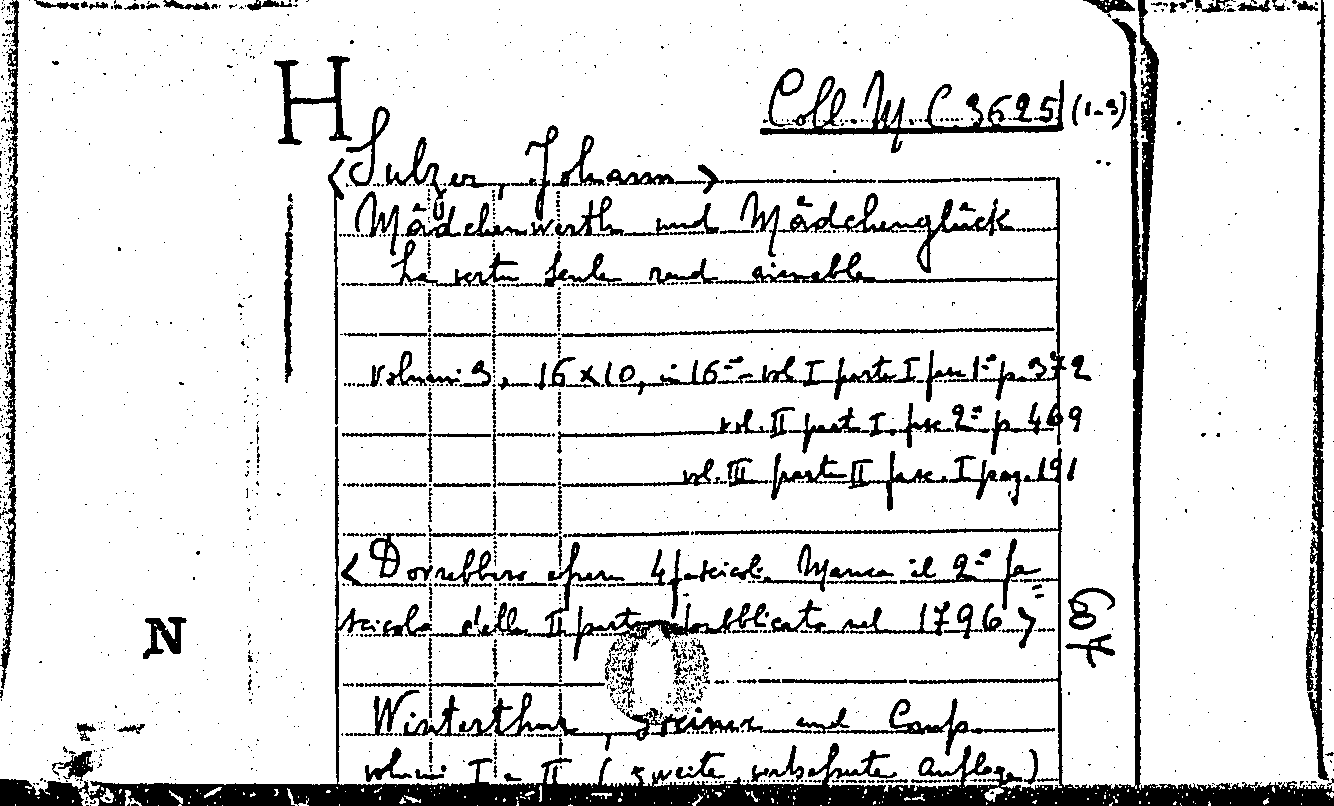 H
Coll. M. C. 3625 (1-3)
<Sulzer, Johann>
Mädchenwerth und Mädchenglück
La vertu seule rend aimable
volumi 3, 16x10, in 16º - vol I parte I fasc 1º p. 372
vol. II parte I. fasc 2º p. 469
vol. III parte II fasc. I pag. 191
<Dovrebbero essere 4 fascicoli. Manca il 2º fa=
scicolo della II parte pubblicato nel 1796>
64
N
Winterthur, Steiner und Comp.
volumi I e II (zweite verbesserte Auflage)